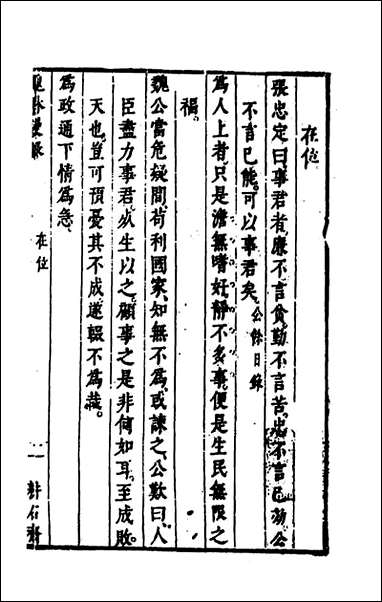 在位
張忠定曰事君者廉不言貧勤不言苦忠不言己効公
不言己能可以事君矣公餘日錄
為人上者只是澹無嗜好靜不多事便是生民無限之
福
魏公當危疑間苟利國家知無不為或諫之公歎曰人
臣盡力事君死生以之顧事之是非何如耳至成敗
天也豈可預憂其不成遂輟不為哉
為政通下情為急
在位
一